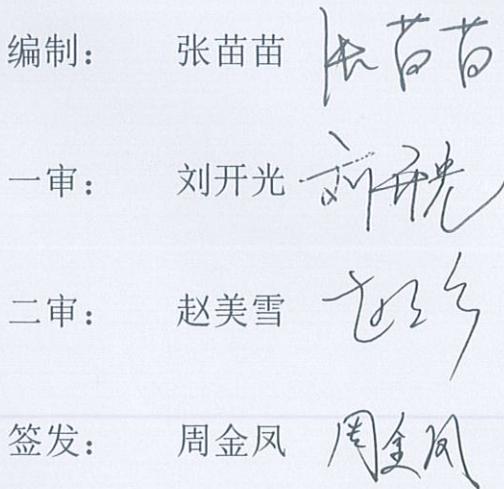 编制： 张苗苗 张苗苗
一审： 刘开光 刘开光
二审： 赵美雪
签发： 周金凤 周金凤